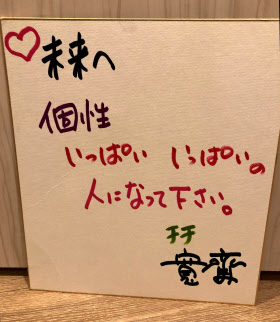 ♡未来へ
個性
いっぱい いっぱいの
人になって下さい。
チチ
寛齋